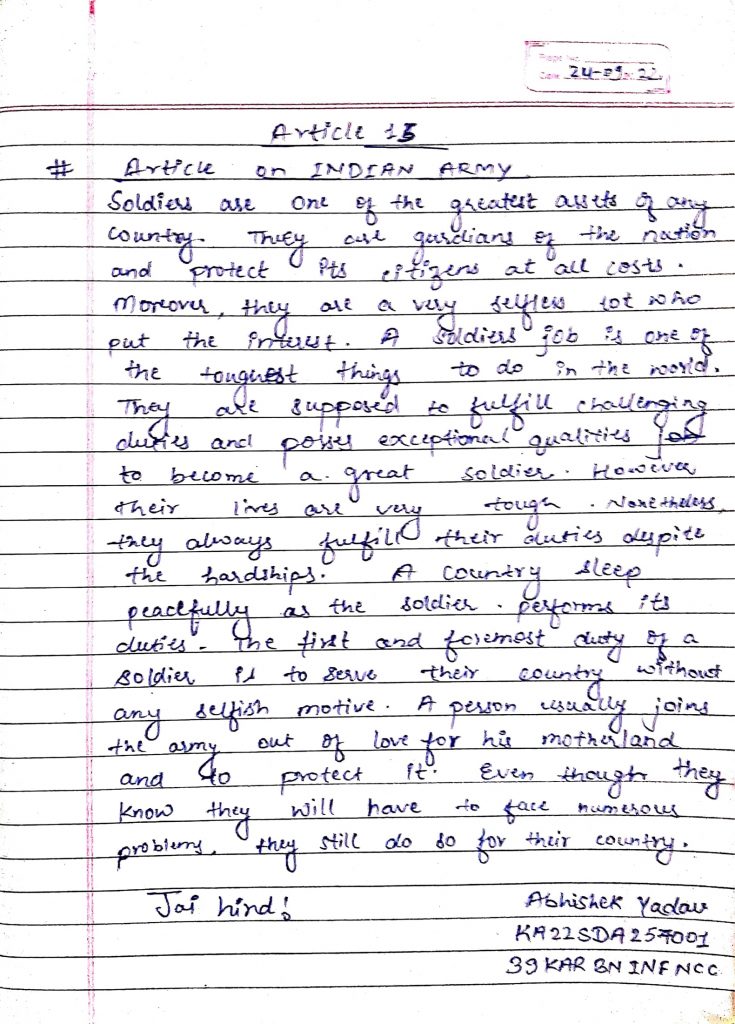 Page No.
Date 24-09-22
Article 15
# Article on INDIAN ARMY.
Soldiers are one of the greatest assets of any
country. They are gardians of the nation
and protect its citizens at all costs.
Moreover, they are a very selfless lot who
put the interest. A soldiers job is one of
the toughest things to do in the world.
They are supposed to fulfill challenging
duties and posses exceptional qualities
to become a great soldier. However
their lives are very tough. Nonetheless,
they always fulfill their duties despite
the hardships. A country sleep
peacefully as the soldier. performs its
duties. The first and foremost duty of a
soldier is to serve their country without
any selfish motive. A person usually joins
the army out of love for his motherland
and to protect it. Even though they
know they will have to face numerous
problems, they still do so for their country.
Jai hind!
Abhishek Yadav
KA22SDA257001
39 KAR BN INF NCC